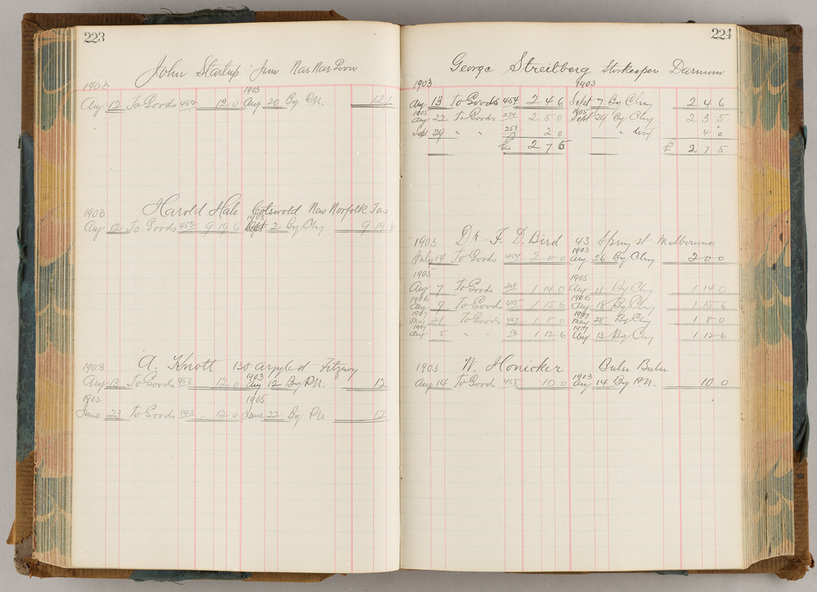 223
John Startup Junr Nar Nar Goon
1903 1903
Aug 12 To Goods 454 12 0 Aug 20 By P.N. 12
1903 Harold Hale Cotswold Nar Norfolk Tas
1903
Aug 12 To Goods 454 9 19 6 Sept 2 By Chq 9 19 6
1903 A. Knott 130 Argyle st Fitzroy
1903
Aug 13 To Goods 453 12 0 Aug 12 By P.N. 12
1905 1905
June 23 To Goods 12 0 June 22 By P.N. 12
224
George Streitberg Storekeeper Darnum
1903 1903
Aug 13 To Goods 454 2 4 6 Sept 7 By Chq 2 4 6
1905 1905
Aug 22 To Goods 2 5 0 Sept 29 By Chq 2 3 5
Sept 29 " " 2 0 " " 4 0
£ 2 7 5 £ 2 7 5
1903 Dr F. D. Bird 43 Spring st Melbourne
1903
July 14 To Goods 454 2 0 0 Aug 26 By Chq 2 0 0
1905 1905
Aug 7 To Goods 1 14 0 Aug 11 By Chq 1 14 0
1906 1906
Aug 9 To Goods 1 15 6 Aug 18 By Chq 1 15 6
1907 1907
May 21 To Goods 1 8 0 May 28 By Chq 1 8 0
1907 1907
Aug 5 " " 1 12 6 Aug 13 By Chq 1 12 6
1903 W. Honicker Bulu Bulu
1903
Aug 14 To Goods 455 10 0 Aug 14 By P.N. 10 0